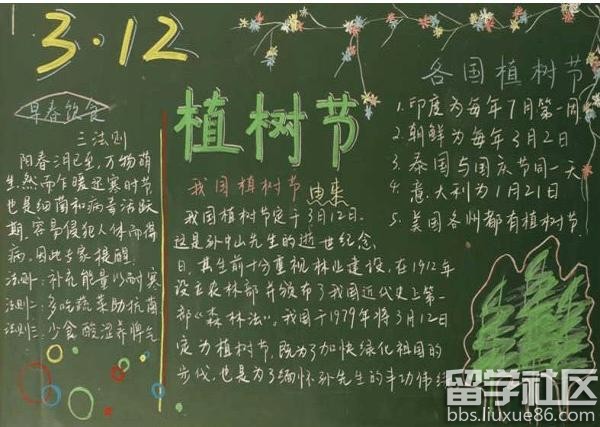 3·12
植树节
早春饮食
三法则
阳春三月已至,万物萌
生,然而乍暖还寒时节
也是细菌和病毒活跃
期,容易侵犯人体而得
病,因此专家提醒:
法则一:补充能量以耐寒
法则二:多吃蔬菜助抗菌
法则三:少食酸涩养脾气
我国植树节由来
我国植树节定于3月12日,
这是孙中山先生的逝世纪念
日,其生前十分重视林业建设,在1912年
设立农林部并颁布了我国近代史上第一
部“森林法”。我国于1979年将3月12日
定为植树节,既为了加快绿化祖国的
步伐,也是为了缅怀孙先生的丰功伟绩
各国植树节
1.印度为每年7月第一周
2.朝鲜为每年3月2日
3.泰国与国庆节同一天
4.意大利为1月21日
5.美国各州都有植树节
留学社区
bbs.liuxue86.com